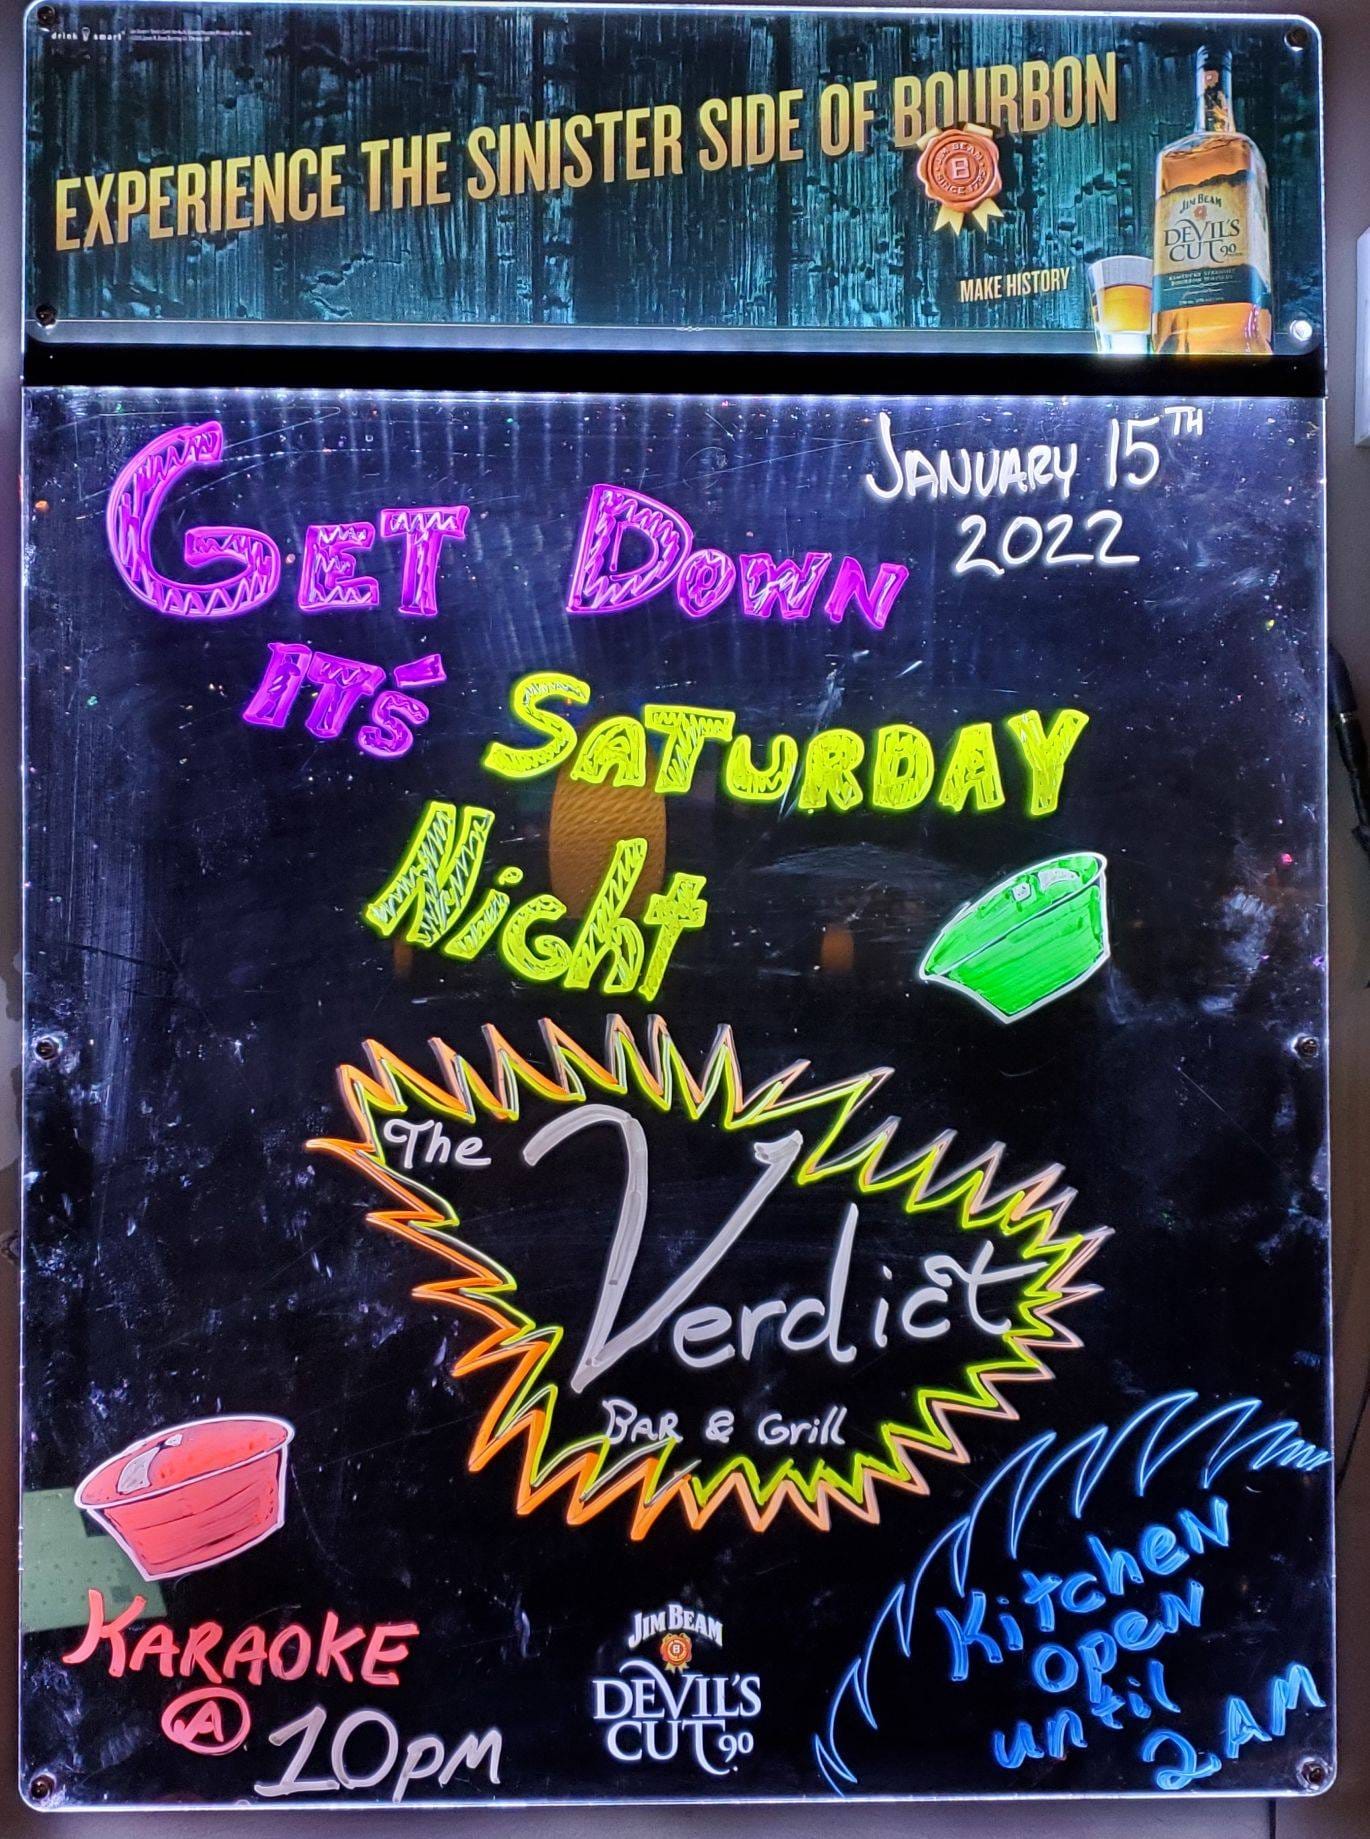 drink smart
EXPERIENCE THE SINISTER SIDE OF BOURBON
JIM BEAM
B
SINCE 1795
MAKE HISTORY
JIM BEAM
DEVIL'S
CUT 90
KENTUCKY STRAIGHT
BOURBON WHISKEY
JANUARY 15TH
2022
GET DOWN
IT'S SATURDAY
Night
The
Verdict
BAR & Grill
KARAOKE
@
10PM
JIM BEAM
B
DEVIL'S
CUT 90
Kitchen
open
until
2 AM